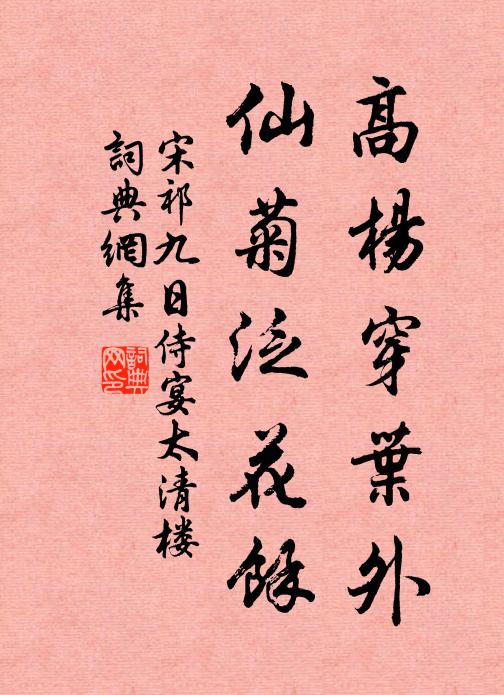 高楊穿葉外
仙菊泛花餘
宋祁九日侍宴太清楼
詞典網集
詞典
网印